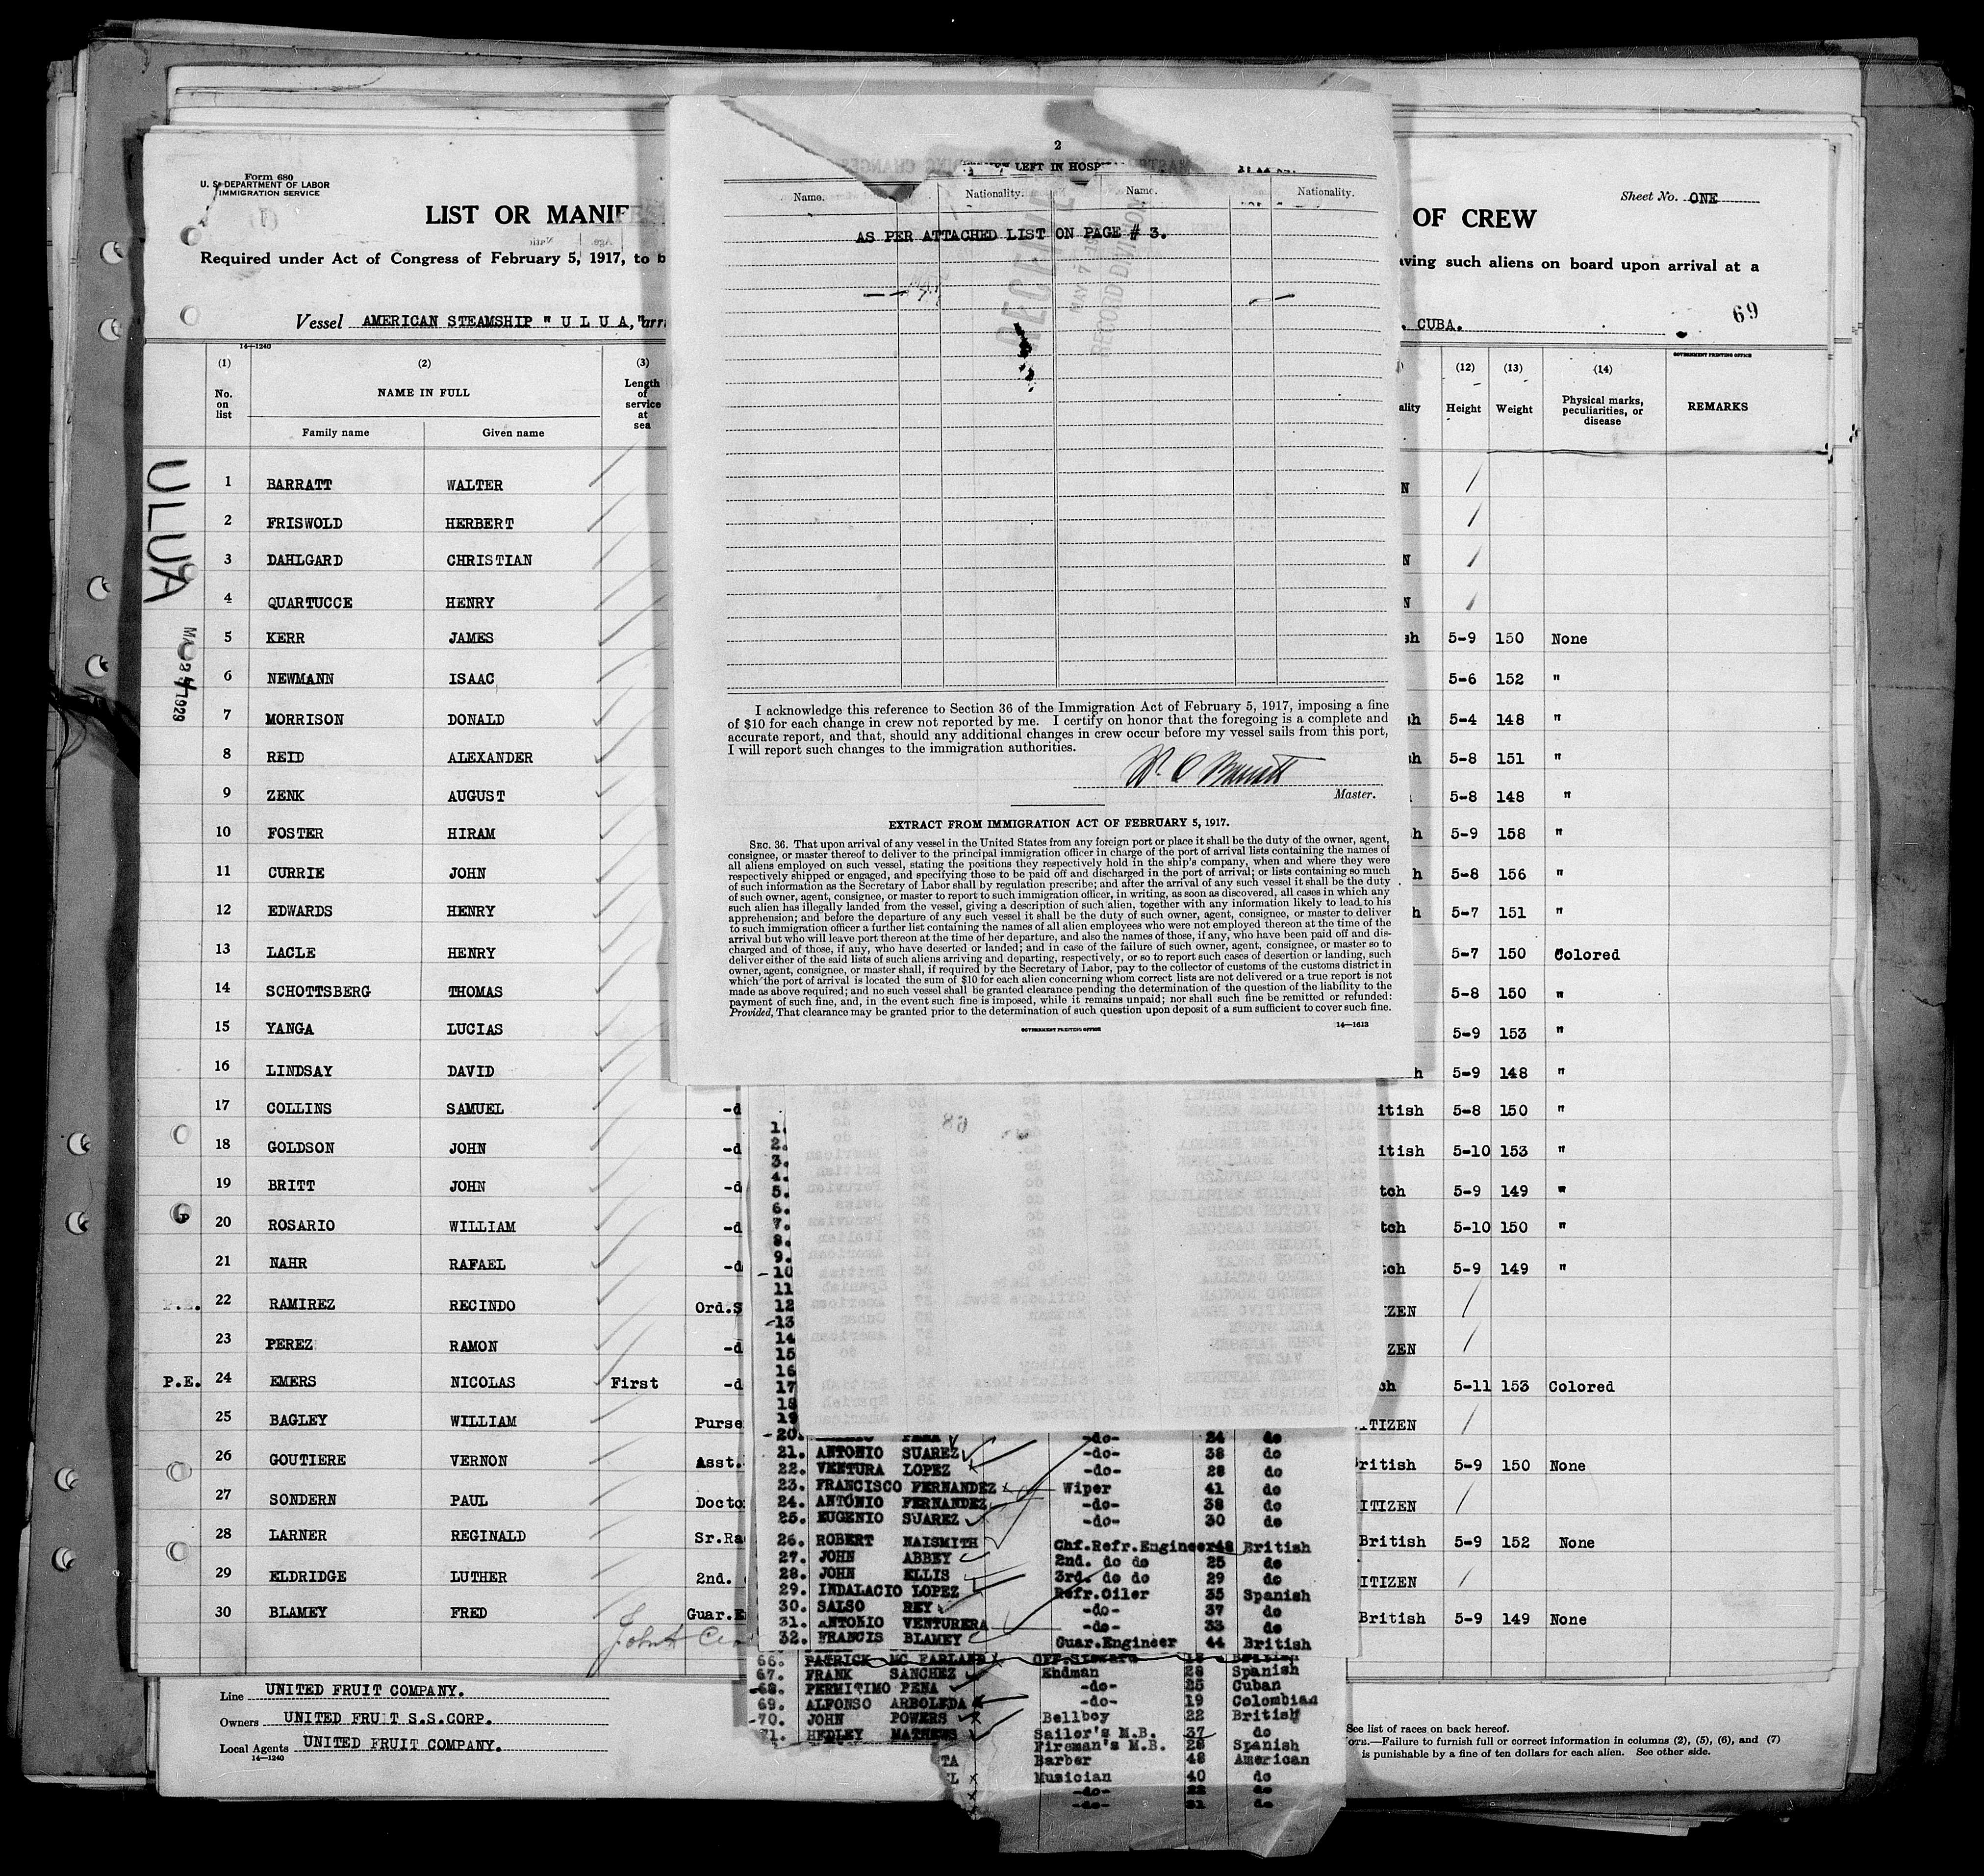 Form 680
U. S. DEPARTMENT OF LABOR
IMMIGRATION SERVICE
LIST OR MANIF
OF CREW
Sheet No. ONE
Required under Act of Congress of February 5, 1917, to
such aliens on board upon arrival at a
69
Vessel AMERICAN STEAMSHIP " U L U A,"
CUBA.
14—1240
GOVERNMENT PRINTING OFFICE
(1) (2) (3) (12) (13) (14)
No. on list
NAME IN FULL
Family name Given name
Length of service at sea
Height Weight
Physical marks, peculiarities, or disease
REMARKS
ULUA
1929
1 BARRATT WALTER
2 FRISWOLD HERBERT
3 DAHLGARD CHRISTIAN
4 QUARTUCCE HENRY
5 KERR JAMES 5-9 150 None
6 NEWMANN ISAAC 5-6 152 "
7 MORRISON DONALD 5-4 148 "
8 REID ALEXANDER 5-8 151 "
9 ZENK AUGUST 5-8 148 "
10 FOSTER HIRAM 5-9 158 "
11 CURRIE JOHN 5-8 156 "
12 EDWARDS HENRY 5-7 151 "
13 LACLE HENRY 5-7 150 Colored
14 SCHOTTSBERG THOMAS 5-8 150 "
15 YANGA LUCIAS 5-9 153 "
16 LINDSAY DAVID 5-9 148 "
17 COLLINS SAMUEL -d itish 5-8 150 "
18 GOLDSON JOHN -d itish 5-10 153 "
19 BRITT JOHN -d tch 5-9 149 "
20 ROSARIO WILLIAM -d tch 5-10 150 "
21 NAHR RAFAEL -d tch 5-9 149 "
P.E. 22 RAMIREZ RECINDO Ord.S IZEN
23 PEREZ RAMON -d ZEN
P.E. 24 EMERS NICOLAS First -d ch 5-11 153 Colored
25 BAGLEY WILLIAM Purse ITIZEN
26 GOUTIERE VERNON Asst. ritish 5-9 150 None
27 SONDERN PAUL Docto ITIZEN
28 LARNER REGINALD Sr.Ra British 5-9 152 None
29 ELDRIDGE LUTHER 2nd. ITIZEN
30 BLAMEY FRED Guar.E British 5-9 149 None
Line UNITED FRUIT COMPANY.
Owners UNITED FRUIT S.S.CORP.
Local Agents UNITED FRUIT COMPANY.
14—1240
See list of races on back hereof.
NOTE.—Failure to furnish full or correct information in columns (2), (5), (6), and (7)
is punishable by a fine of ten dollars for each alien. See other side.
2
LEFT IN HOSP
Name. Nationality. Name. Nationality.
AS PER ATTACHED LIST ON PAGE # 3.
RECEIVED
MAY 7
RECORD DIVISION
I acknowledge this reference to Section 36 of the Immigration Act of February 5, 1917, imposing a fine
of $10 for each change in crew not reported by me. I certify on honor that the foregoing is a complete and
accurate report, and that, should any additional changes in crew occur before my vessel sails from this port,
I will report such changes to the immigration authorities.
Master.
EXTRACT FROM IMMIGRATION ACT OF FEBRUARY 5, 1917.
SEC. 36. That upon arrival of any vessel in the United States from any foreign port or place it shall be the duty of the owner, agent,
consignee, or master thereof to deliver to the principal immigration officer in charge of the port of arrival lists containing the names of
all aliens employed on such vessel, stating the positions they respectively hold in the ship's company, when and where they were
respectively shipped or engaged, and specifying those to be paid off and discharged in the port of arrival; or lists containing so much
of such information as the Secretary of Labor shall by regulation prescribe; and after the arrival of any such vessel it shall be the duty
of such owner, agent, consignee, or master to report to such immigration officer, in writing, as soon as discovered, all cases in which any
such alien has illegally landed from the vessel, giving a description of such alien, together with any information likely to lead to his
apprehension; and before the departure of any such vessel it shall be the duty of such owner, agent, consignee, or master to deliver
to such immigration officer a further list containing the names of all alien employees who were not employed thereon at the time of the
arrival but who will leave port thereon at the time of her departure, and also the names of those, if any, who have been paid off and dis-
charged and of those, if any, who have deserted or landed; and in case of the failure of such owner, agent, consignee, or master so to
deliver either of the said lists of such aliens arriving and departing, respectively, or so to report such cases of desertion or landing, such
owner, agent, consignee, or master shall, if required by the Secretary of Labor, pay to the collector of customs of the customs district in
which the port of arrival is located the sum of $10 for each alien concerning whom correct lists are not delivered or a true report is not
made as above required; and no such vessel shall be granted clearance pending the determination of the question of the liability to the
payment of such fine, and, in the event such fine is imposed, while it remains unpaid; nor shall such fine be remitted or refunded:
Provided, That clearance may be granted prior to the determination of such question upon deposit of a sum sufficient to cover such fine.
GOVERNMENT PRINTING OFFICE
14—1613
1.
2.
3.
4.
5.
6.
7.
8.
9.
-10
11
12
-13
14
15
16
17
18
19
-20. -do- 24 do
21. ANTONIO SUAREZ -do- 38 do
22. VENTURA LOPEZ -do- 28 do
23. FRANCISCO FERNANDEZ Wiper 41 do
24. ANTONIO FERNANDEZ -do- 38 do
25. EUGENIO SUAREZ -do- 30 do
26. ROBERT NAISMITH Chf.Refr.Engineer British
27. JOHN ABBEY 2nd. do do 25 do
28. JOHN ELLIS 3rd. do do 29 do
29. INDALACIO LOPEZ Refr.Oiler 35 Spanish
30. SALSO REY -do- 37 do
31. ANTONIO VENTURERA -do- 33 do
32. FRANCIS BLAMEY Guar.Engineer 44 British
66. PATRICK MC FARLAND
67. FRANK SANCHEZ Endman 28 Spanish
-68. PERMITIMO PENA -do- 25 Cuban
69. ALFONSO ARBOLEDA -do- 19 Colombian
-70. JOHN POWERS Bellboy 22 British
71. HEDLEY MATHEWS Sailor's M.B. 37 do
Fireman's M.B. 28 Spanish
TA Barber 48 American
Musician 40 do
-do- 22 do
-do- 21 do